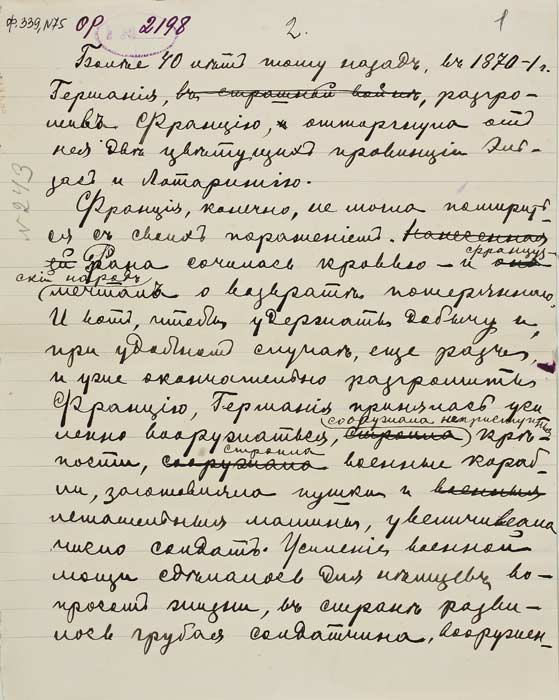 ф. 339, N75 ОР 2198 2. 1
N 243
Болѣе 40 лѣтъ тому назадъ, въ 1870-1 г.
Германія, въ страшной войнѣ, разгро-
мивъ Францію, отторгнула отъ
нея двѣ цвѣтущихъ провинціи Эль-
засъ и Лотарингію.
Франція, конечно, не могла помирить-
ся съ своимъ пораженіемъ. Нанесенная
ей Рана сочилась кровью – и она француз-
скій народъ
мечталъ о возвратѣ потеряннаго.
И вотъ, чтобы удержать добычу и,
при удобномъ случаѣ, еще разъ,
и уже окончательно разгромить
Францію, Германія принялась уси-
ленно вооружаться, строила сооружала неприступныя крѣ-
пости, сооружала строила военные кораб-
ли, заготовляла пушки и военныя
летательныя машины, увеличивала
число солдатъ. Усиленіе военной
мощи сдѣлалось для нѣмцевъ во-
просомъ жизни, въ странѣ разви-
лось грубая солдатчина, вооружен-